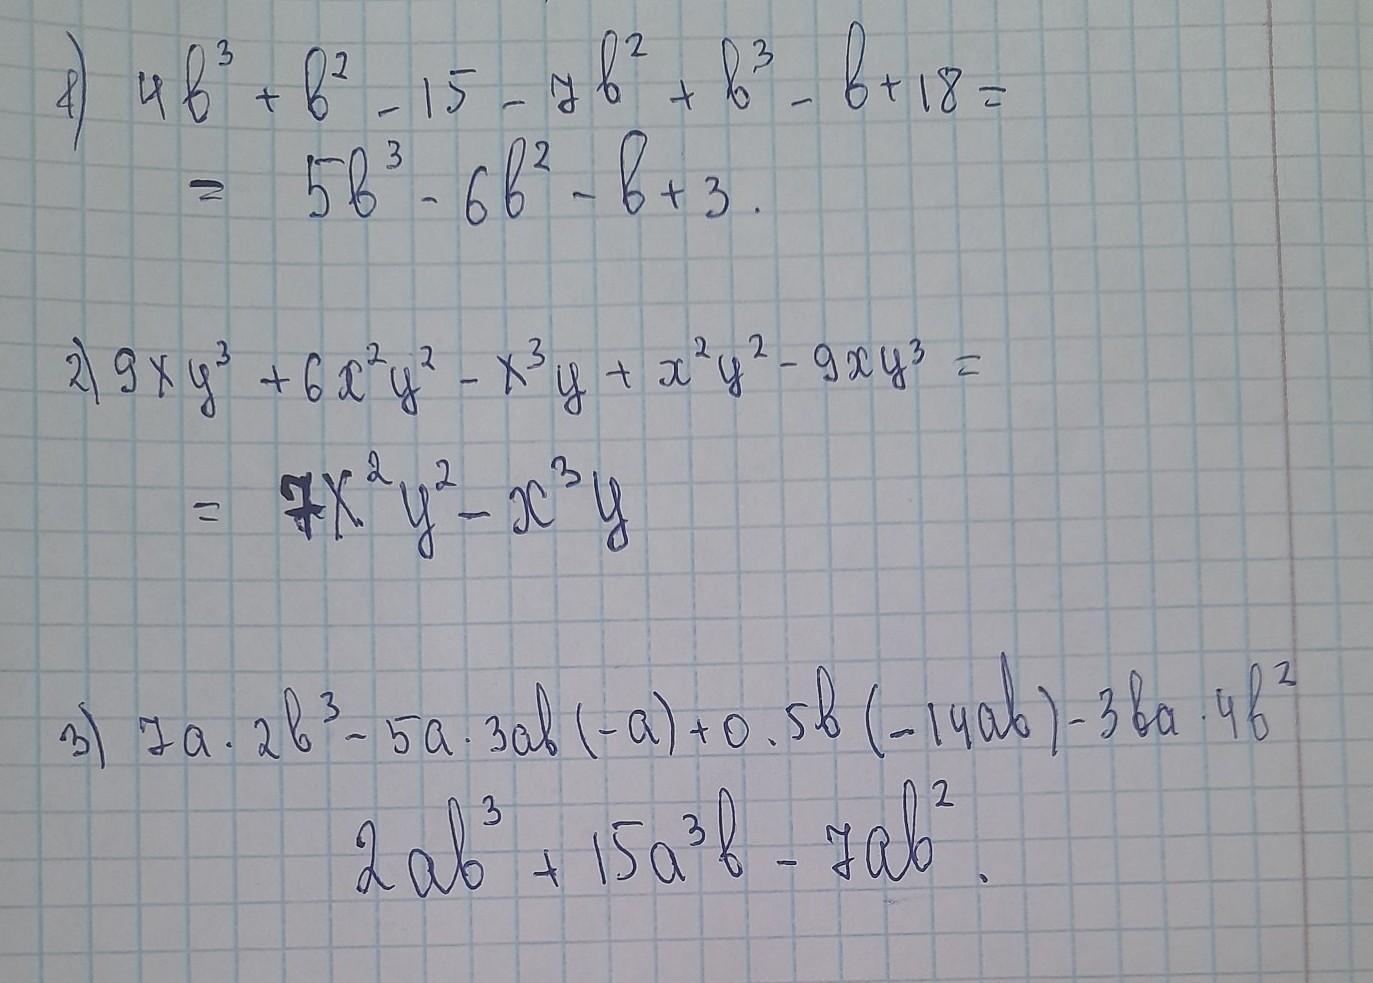 1) 4b³ + b² - 15 - 7b² + b³ - b + 18 =
= 5b³ - 6b² - b + 3.
2) 9xy³ + 6x²y² - x³y + x²y² - 9xy³ =
= 7x²y² - x³y
3) 7a · 2b³ - 5a · 3ab (-a) + 0.5b (-14ab) - 3ba · 4b²
2ab³ + 15a³b - 7ab².